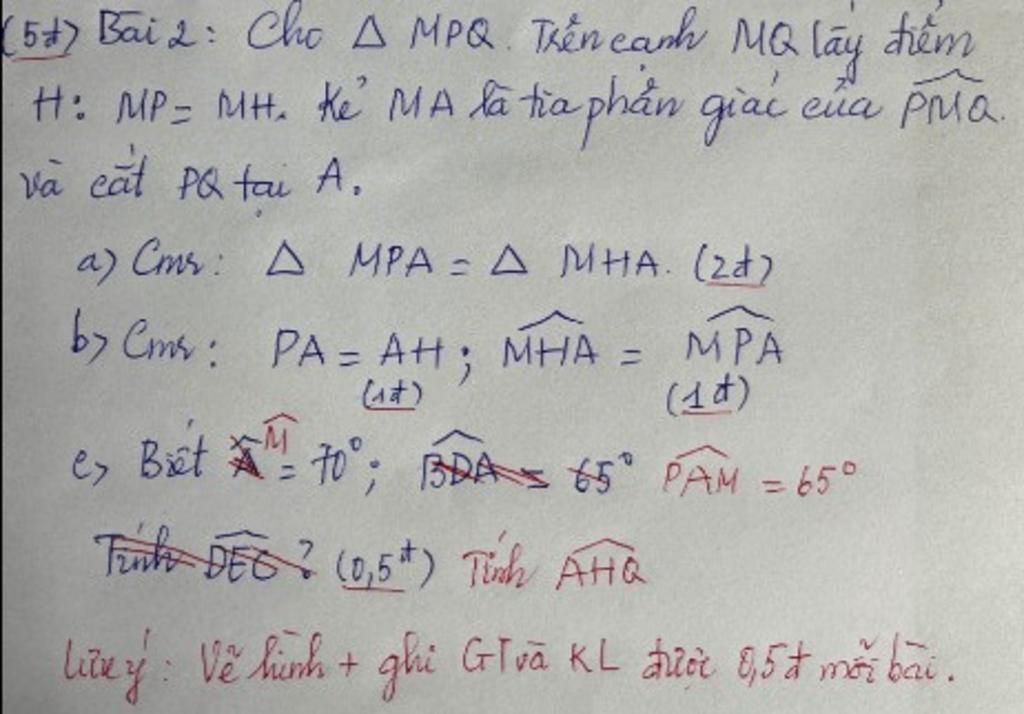 (5đ) Bài 2: Cho Δ MPQ. Trên cạnh MQ lấy điểm
H: MP = MH. Kẻ MA là tia phân giác của \widehat{PMQ}.
và cắt PQ tại A.
a) Cmr: Δ MPA = Δ MHA. (2đ)
b) Cmr: PA = AH; \widehat{MHA} = \widehat{MPA}
(1đ) (1đ)
c) Biết \widehat{M} = 70°; \widehat{BDA} = 65° \widehat{PAM} = 65°
Tính \widehat{DEC}? (0,5đ) Tính \widehat{AHQ}
Lưu ý: Vẽ hình + ghi GT và KL được 0,5đ mỗi bài.